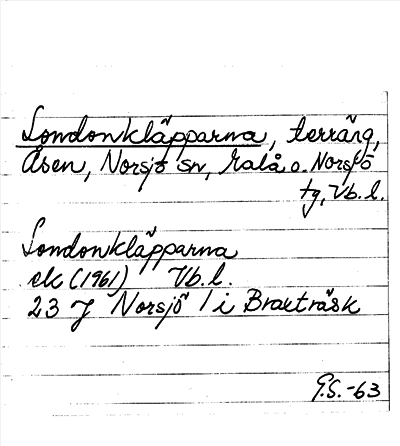 Londonkläpparna, terräng,
Åsen, Norsjö sn, Malå o. Norsjö
tg, Vb. l.
Londonkläpparna
ek (1961) Vb. l.
23 J Norsjö 1 i Braxträsk
G.S. -63